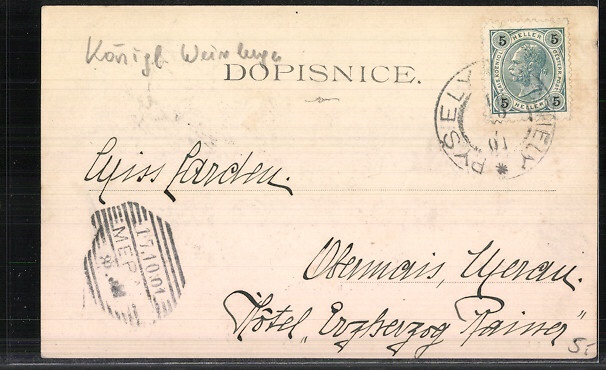 Königl. Weinberge
DOPISNICE.
5 HELLER 5
5 HELLER 5
PYSELY
01
Miss Carden.
15.10.01
MERA
Obermais, Meran.
Hôtel „Erzherzog Rainer"
5.-